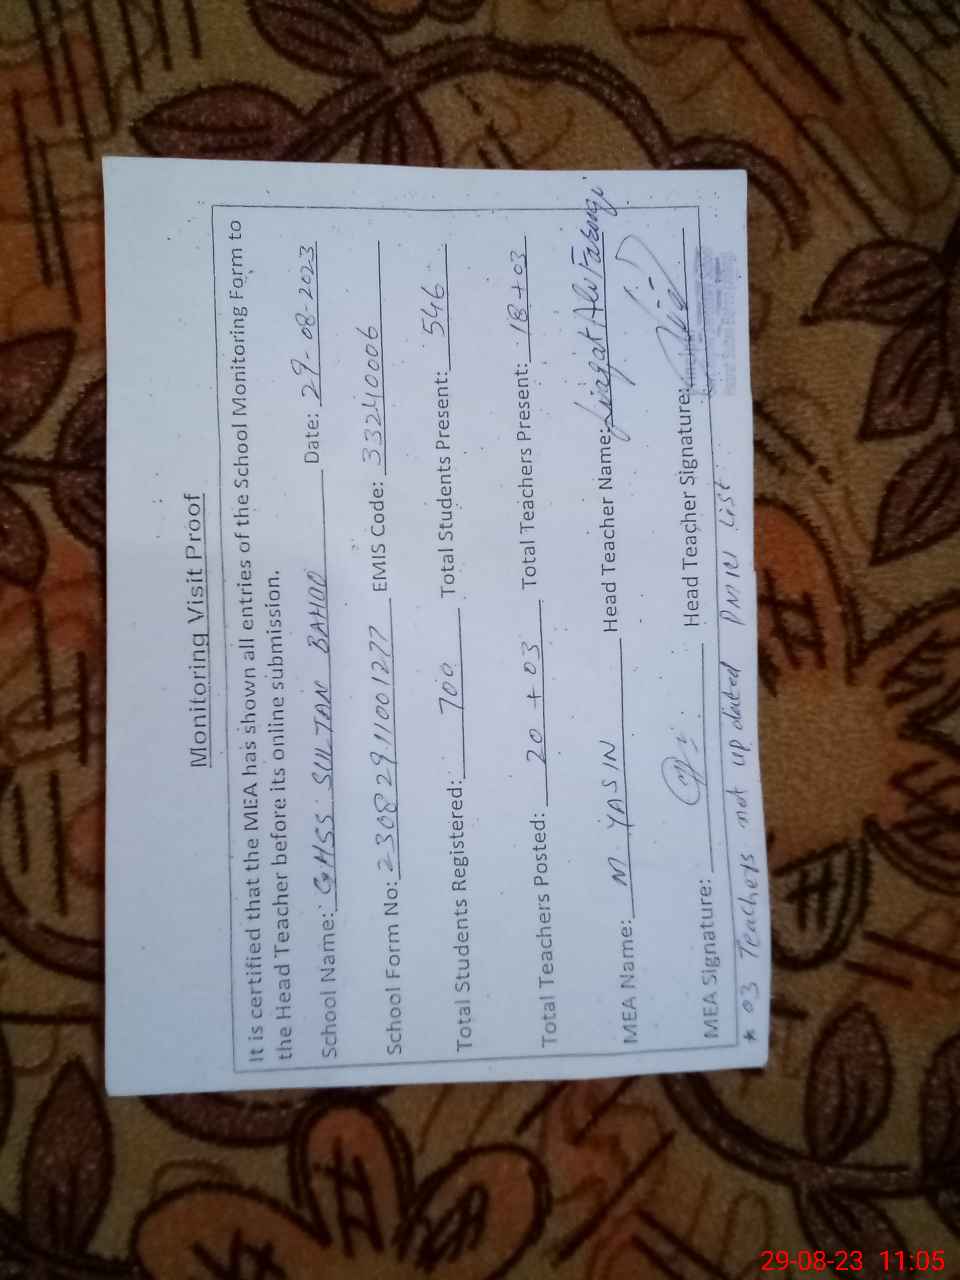 Monitoring Visit Proof
It is certified that the MEA has shown all entries of the School Monitoring Form to
the Head Teacher before its online submission.
School Name: GHSS SULTAN BAHOO Date: 29-08-2023
School Form No: 23082911001277 EMIS Code: 33240006
Total Students Registered: 700 Total Students Present: 546
Total Teachers Posted: 20 + 03 Total Teachers Present: 18 + 03
MEA Name: M. YASIN Head Teacher Name: Liaqat Ali
MEA Signature: Head Teacher Signature:
* 03 Teachers not up dated PMIU List
29-08-23 11:05